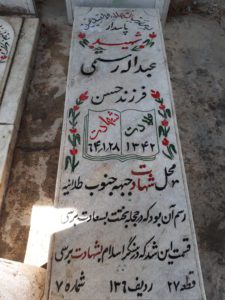 پاسدار
شهید
عبداله رستمی
فرزند حسن
ولادت شهادت
۱۳۴۲ ۶۴،۱،۲۸
محل شهادت جبهه جنوب طلائیه
رسم آن بود که در حجله بخت بسعادت برسی
قسمت این شد که در سنگر اسلام بشهادت برسی
قطعه ۲۷ ردیف ۱۳۶ شماره ۷